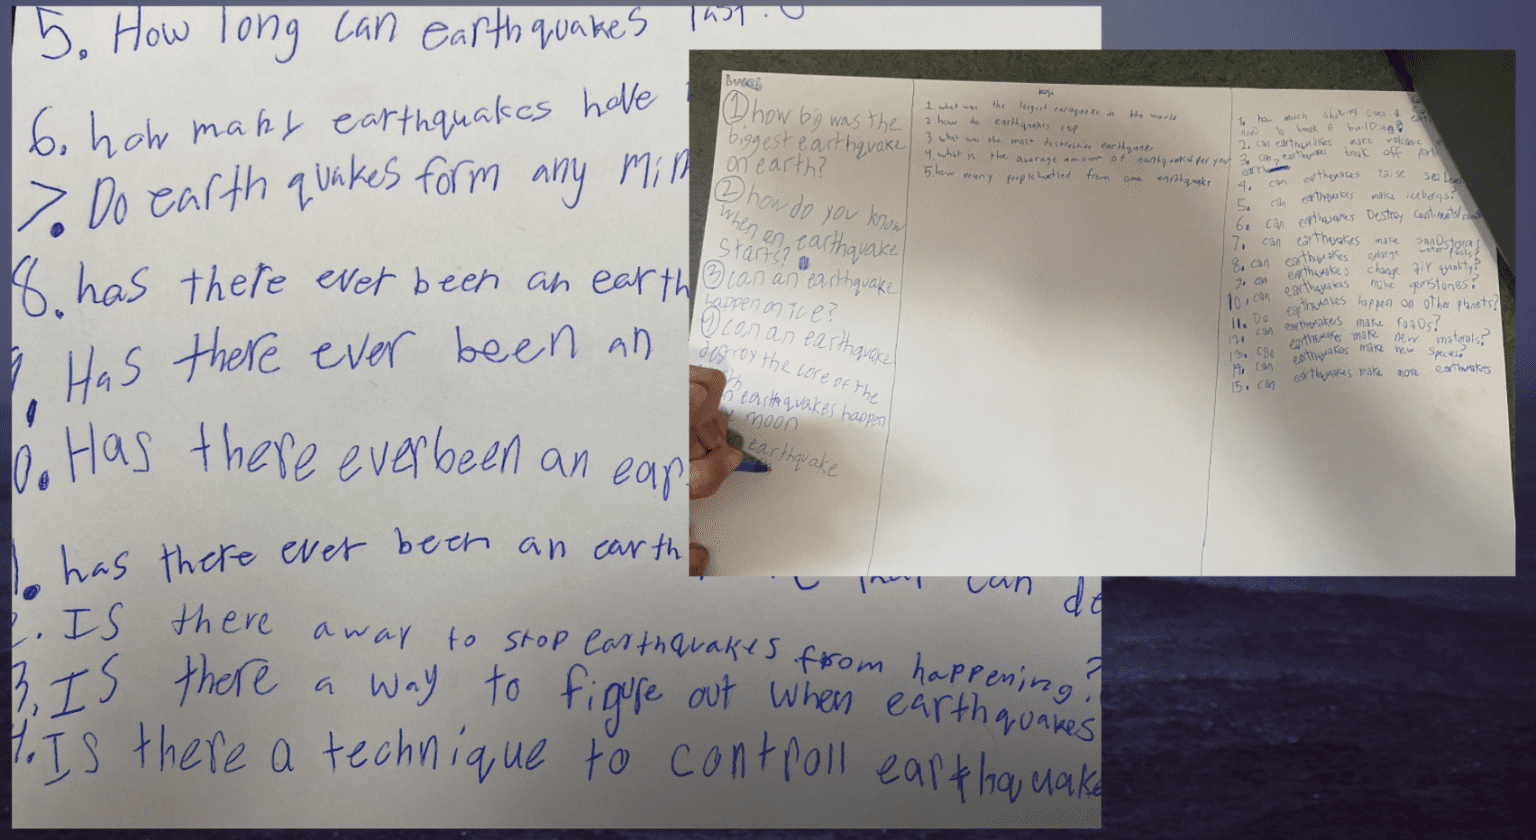 5. How long can earthquakes last.
6. how many earthquakes have
7. Do earth quakes form any
8. has there ever been an earth
Has there ever been an
0. Has there everbeen an ear
1. has there ever been an earth that can de
2. IS there away to stop earthquakes from happening?
3. IS there a way to figure out when earthquakes
4. Is there a technique to controll earthquake
Lucas
1 how big was the
biggest earthquake
on earth?
2 how do you know
when an earthquake
starts?
3 can an earthquake
happen on Ice?
can an earthquake
destroy the core of the
earthquakes happen
moon
earthquake
Koji
1. what was the largest earthquake in the world
2 how do earthquakes stop
3 what was the most destructive earthquake
4 what is the average amount of earthquakes per year
5. how many people died from one earthquake
1. how much shaking Does
need to break a building?
2. can earthquakes make volcanic
3. can earthquakes break off
earth
4. can earthquakes raise sea
5. can earthquakes make icebergs?
6. can earthquakes Destroy continents
7. can earthquakes make sandstorms
8. can earthquakes enlarge
9. can earthquakes change air quality?
10. can earthquakes make gemstones?
11. Do earthquakes happen on other planets?
12. can earthquakes make roads?
13. can earthquakes make new materals?
14. can earthquakes make new species?
15. can earthquakes make more earthquakes